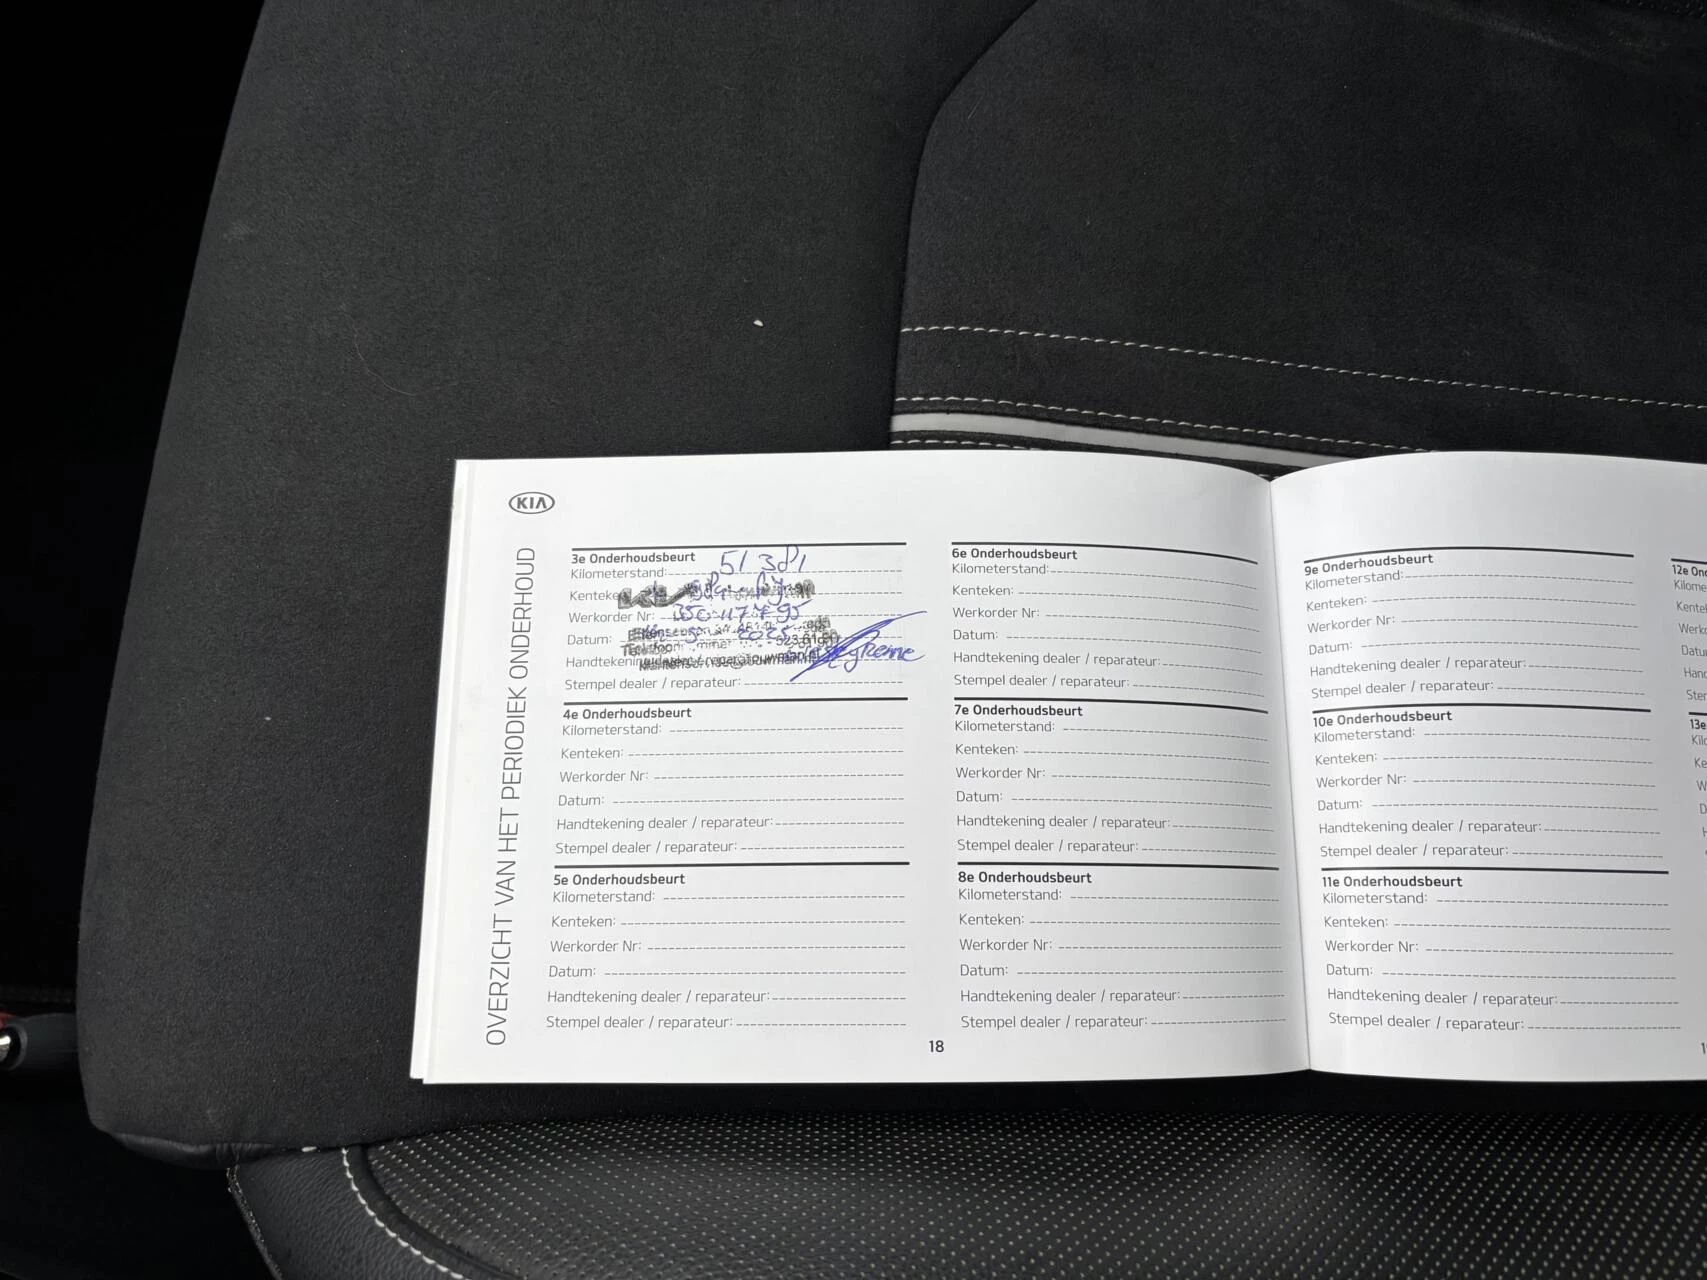 KIA
OVERZICHT VAN HET PERIODIEK ONDERHOUD
3e Onderhoudsbeurt
Kilometerstand: 51381
Werkorder Nr:
Datum:
Stempel dealer / reparateur:
4e Onderhoudsbeurt
Kilometerstand:
Kenteken:
Werkorder Nr:
Datum:
Handtekening dealer / reparateur:
Stempel dealer / reparateur:
5e Onderhoudsbeurt
Kilometerstand:
Kenteken:
Werkorder Nr:
Datum:
Handtekening dealer / reparateur:
Stempel dealer / reparateur:
6e Onderhoudsbeurt
Kilometerstand:
Kenteken:
Werkorder Nr:
Datum:
Handtekening dealer / reparateur:
Stempel dealer / reparateur:
7e Onderhoudsbeurt
Kilometerstand:
Kenteken:
Werkorder Nr:
Datum:
Handtekening dealer / reparateur:
Stempel dealer / reparateur:
8e Onderhoudsbeurt
Kilometerstand:
Kenteken:
Werkorder Nr:
Datum:
Handtekening dealer / reparateur:
Stempel dealer / reparateur:
18
9e Onderhoudsbeurt
Kilometerstand:
Kenteken:
Werkorder Nr:
Datum:
Handtekening dealer / reparateur:
Stempel dealer / reparateur:
10e Onderhoudsbeurt
Kilometerstand:
Kenteken:
Werkorder Nr:
Datum:
Handtekening dealer / reparateur:
Stempel dealer / reparateur:
11e Onderhoudsbeurt
Kilometerstand:
Kenteken:
Werkorder Nr:
Datum:
Handtekening dealer / reparateur:
Stempel dealer / reparateur:
12e
13e